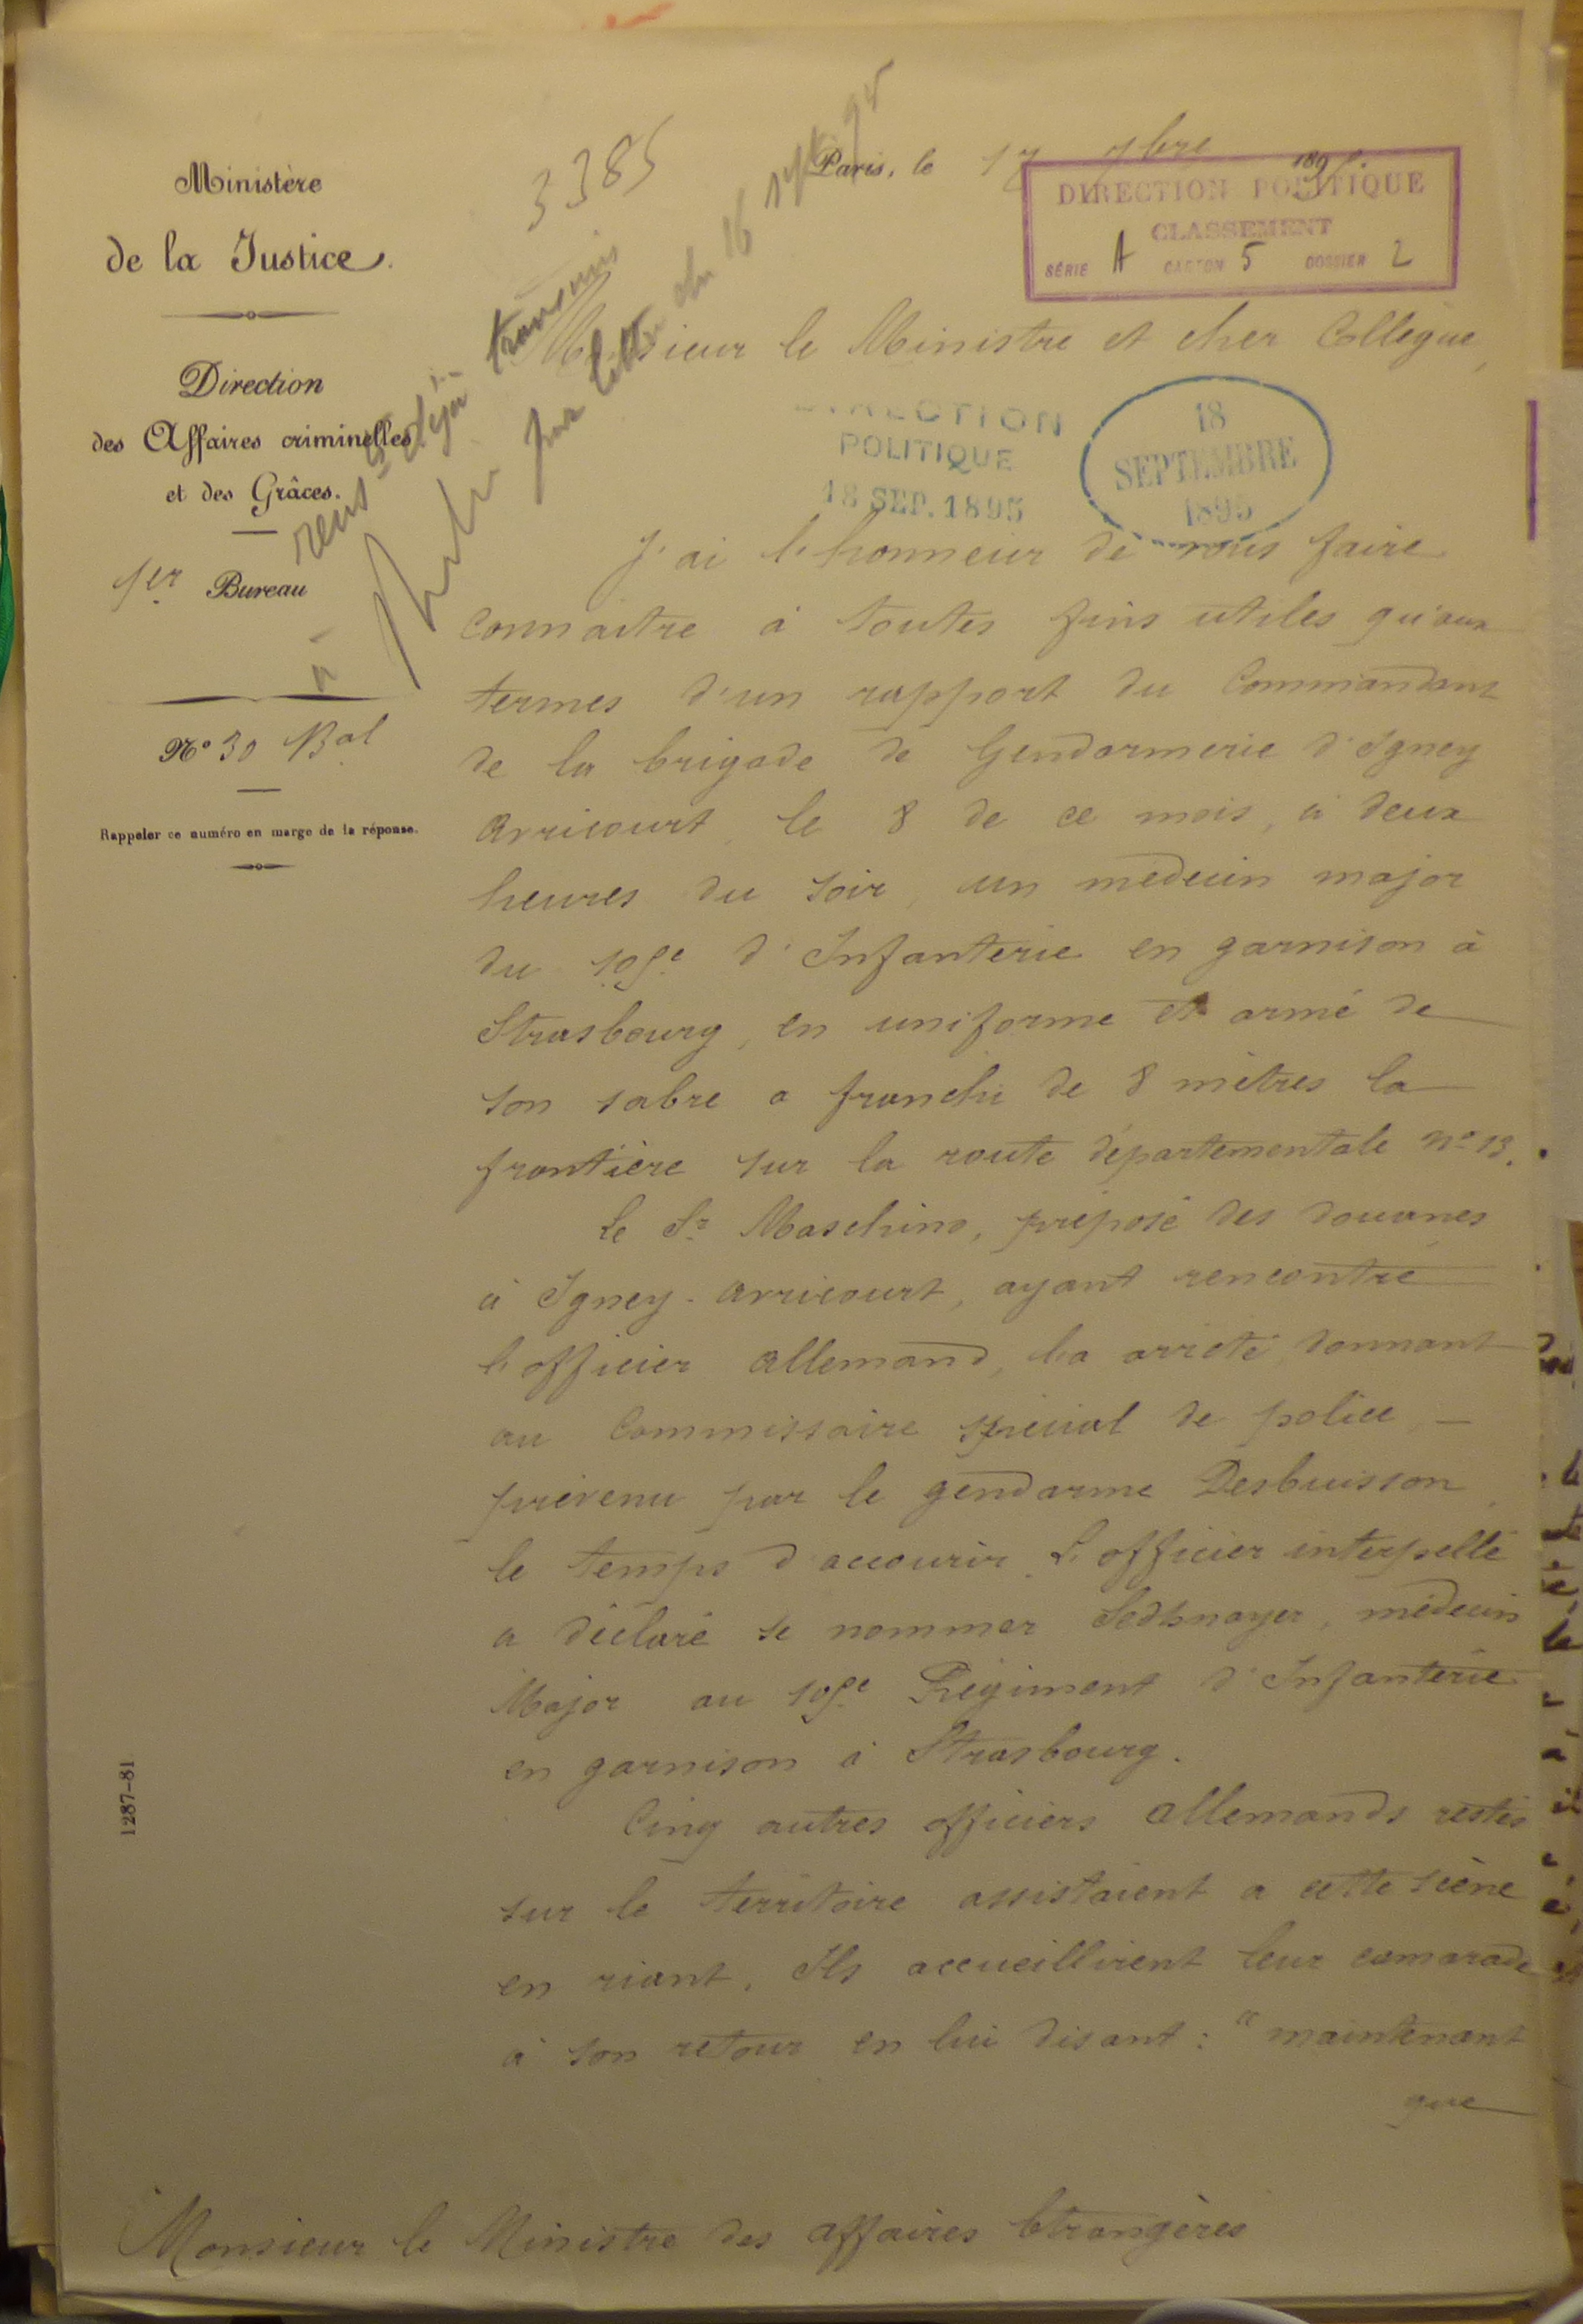 Ministère
de la Justice.
Direction
des Affaires criminelles
et des Grâces.
1er Bureau
No 30 Bal
Rappeler ce numéro en marge de la réponse.
3385
Paris, le 17 7bre 1895
DIRECTION POLITIQUE
CLASSEMENT
SÉRIE A CARTON 5 DOSSIER 2
rens déjà transmis
à
par lettre du 16 7bre 95
Monsieur le Ministre et cher Collègue,
DIRECTION
POLITIQUE
18 SEP. 1895
18
SEPTEMBRE
1895
J'ai l'honneur de vous faire
connaitre à toutes fins utiles qu'aux
termes d'un rapport du Commandant
de la brigade de Gendarmerie d'Igney
Avricourt, le 8 de ce mois, à deux
heures du soir, un médecin major
du 105e d'Infanterie en garnison à
Strasbourg, en uniforme et armé de
son sabre a franchi de 8 mètres la
frontière sur la route départementale no 13.
Le Sr Maschino, préposé des douanes
à Igney-Avricourt, ayant rencontré
l'officier allemand, l'a arrêté, donnant
au Commissaire spécial de police –
prévenu par le gendarme Desbuisson,
le temps d'accourir. L'officier interpellé
a déclaré se nommer médecin
Major au 105e Régiment d'Infanterie
en garnison à Strasbourg.
Cinq autres officiers allemands restés
sur le territoire assistaient a cette scène
en riant. Ils accueillirent leur camarade
à son retour en lui disant : "maintenant
que
Monsieur le Ministre des affaires Etrangères
1287-81